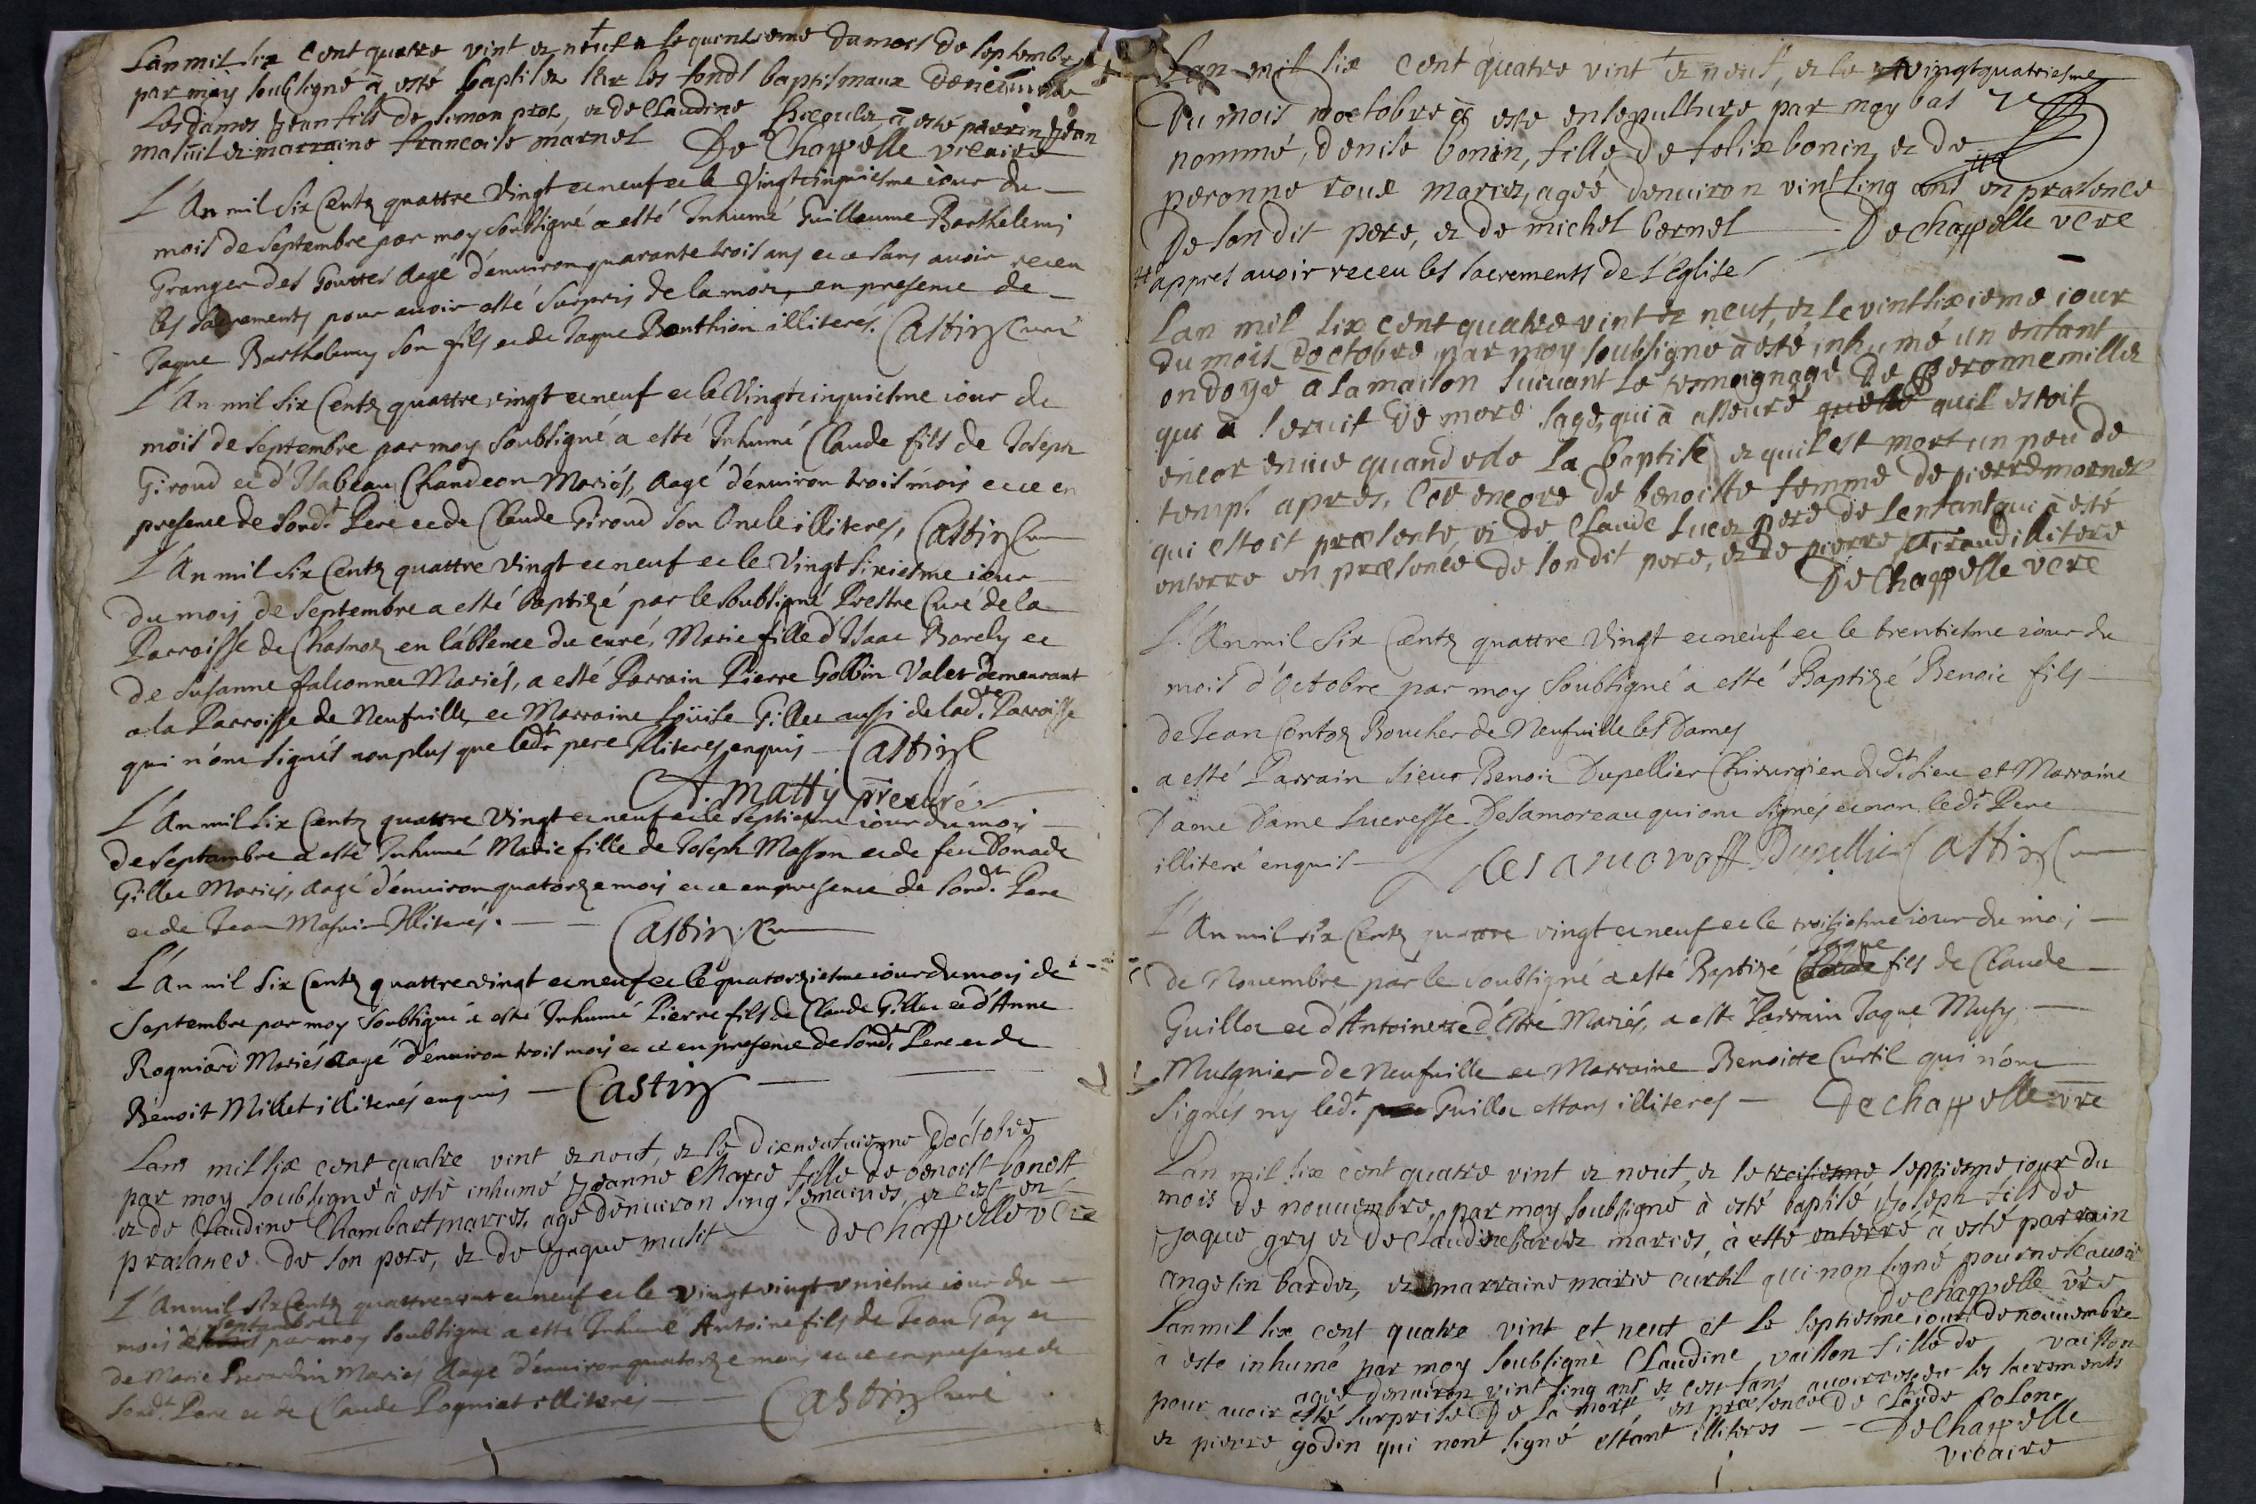 Lan mil six cent quatre vint et neuf et le quinsieme du mois de septembre
par moy soubsigné à esté baptisez sur les fonds baptismaux de neufuille
Les dames Jean fils de simon prost, et de Claudine à esté parrin Jean
masuit et marraine francoise marnet De Chappelle vicaire
L'An mil Six Centz quattre vingt et neuf et le vingtcinquiesme iour du
mois de septembre par moy soubsigné a esté Inhumé Guillaume Barthelemi
Granger des Gouttes Aagé d'enuiron quarante trois ans et ce sans auoir receu
les Sacrements pour auoir esté surpris de la mort, en presence de
Jaque Barthelemy son fils et de Jaque Bonthion illiteres. Castin Curé
L'An mil Six Centz quattre vingt et neuf et le Vingtcinquiesme iour du
mois de septembre par moy soubsigné a esté Inhumé Claude fils de Joseph
Giroud et d'Isabeau Chandeon Mariés, Aagé d'enuiron trois mois et ce en
presence de sond.t Pere et de Claude Giroud son Oncle illiteres, Castin Cure
L'An mil Six Centz quattre vingt et neuf et le Vingt sixiesme iour
du mois de Septembre a esté baptizé par le soubsigné Prestre Curé de la
Parroisse de Chasnoz en l'absence du curé, Marie fille d'Isaac Barely et
de Susanne falconnet Mariés, a esté Parrain Pierre Gobbin Valet demeurant
a la Parroisse de Neufuille, et Marraine Loüise Gillet aussi de lad.te Parroisse
qui n'ont signés non plus que led.t pere Illiteres enquis Castin
A. Matty p̄re curé
L'An mil six Centz quattre Vingt et neuf et le septiesme iour du mois
de Septembre a esté Inhumé Marie fille de Joseph Masson et de feu Donade
Gillet Mariés, Aagé d'enuiron quatorze mois et ce en presence de sond.t Pere
et de Jean Masuir Illiterés. Castin Cure
L'An mil Six Centz quattre vingt et neuf et le quatorziesme iour du mois de
Septembre par moy soubsigné a esté Inhumé Pierre fils de Claude Gillet et d'Anne
Rogniard Mariés Aagé d'enuiron trois mois et ce en presence de sond.t Pere et de
Benoit Millet illiterés enquis Castin
Lans mil six cent quatre vint et neuf, et le dixneufuiesme doctobre
par moy soubsigné à esté inhumé Jeanne Marie fille de benoist bonest
et de Claudine Chambart mariés, agé dènuiron sing semaines, et cest en
præsance de son pere, et de Jaque musit dechappelle vere
L'An mil Six Centz quattre vint et neuf et le vingt vingt vniesme iour du
mois septembre par moy soubsigné a esté Inhumé Antoine fils de Jean Gay et
de Marie Berardin Mariés Aagé d'enuiron quatorze mois et ce en presence de
sond.t Pere et de Claude Rogniat illiterés Castin Curé
Lan mil six cent quatre vint et neuf, et le vingtquatriesme
Du mois doctobre à esté ensepulture par moy bas
nommé, denise bonin, fille de felix bonin, et de
peronne roux mariez, ageé denuiron vint sing ans en præsence
De son dit pere, et de michel bernel Dechappelle vere
appres auoir receu les sacrements de l'Eglise
Lan mil six cent quatre vint et neuf, et le vintsixieme iour
du mois doctobre par moy soubsigné à esté inhumé un enfant
ondoyé à la maison suiuant le temoignage de Peronne millet
qui à seruit de mere sage, qui à asseuré quelle quil estoit
encor en uie quand elle la baptisé, et quil est mort un peu de
temps apres, Cest encore de benoiste femme de pierre mornet
qui estoit præsente, et de Claude lucet pere de lenfant qui à esté
enterre en præsence de son dit pere, et de pierre Giraud illitere
De Chappelle vere
L'An mil Six Centz quattre Vingt et neuf et le trentiesme iour du
mois d'Octobre par moy soubsigné a esté Baptizé Benoit fils
de Jean Contoz Boucher de Neufuille les Dames
a esté Parrain Sieur Benoit Dupellier Chirurgien dud.t Lieu et Marraine
Dame Dame Lucresse Desamoreau qui ont signés et non led.t Pere
illiteré enquis Dupellier Castin Cure
L'An mil six Centz quattre vingt et neuf et le troisiesme iour du mois
de Nouembre par le soubsigné a esté Baptizé Claude Jaque fils de Claude
Guillot et d'Antoinette d'Estré Mariés, a esté Parrain Jaque Musy
Musgnier de Neufuille et Marraine Benoitte Curtil qui n'ont
Signés ny led.t pere Guillot estans illiteres De chappelle vre
Lan mil six cènt quatre vint et neuf, et le troisiesme septiesme iour du
mois de nouuembre, par moy soubsigné à esté baptisé Joseph fils de
Jaque gry et de Claudine bardet mariés, à esté enterré a esté parrain
angelin bardet, et marraine marie curtil qui non signé pour ne scauoir
de Chappelle vre
Lan mil six cent quatre vint et neuf et le septiesme iour de nouuembre
à este inhumé par moy soubsigné Claudine vaillon fille de vaillon
ageé denuiron vint sing ans et cest sans auoir receu les sacrements
pour auoir esté surprise De la mort en præsence de Claude Colon,
et pierre godin qui nont signé estant illiteres De Chappelle
vicaire